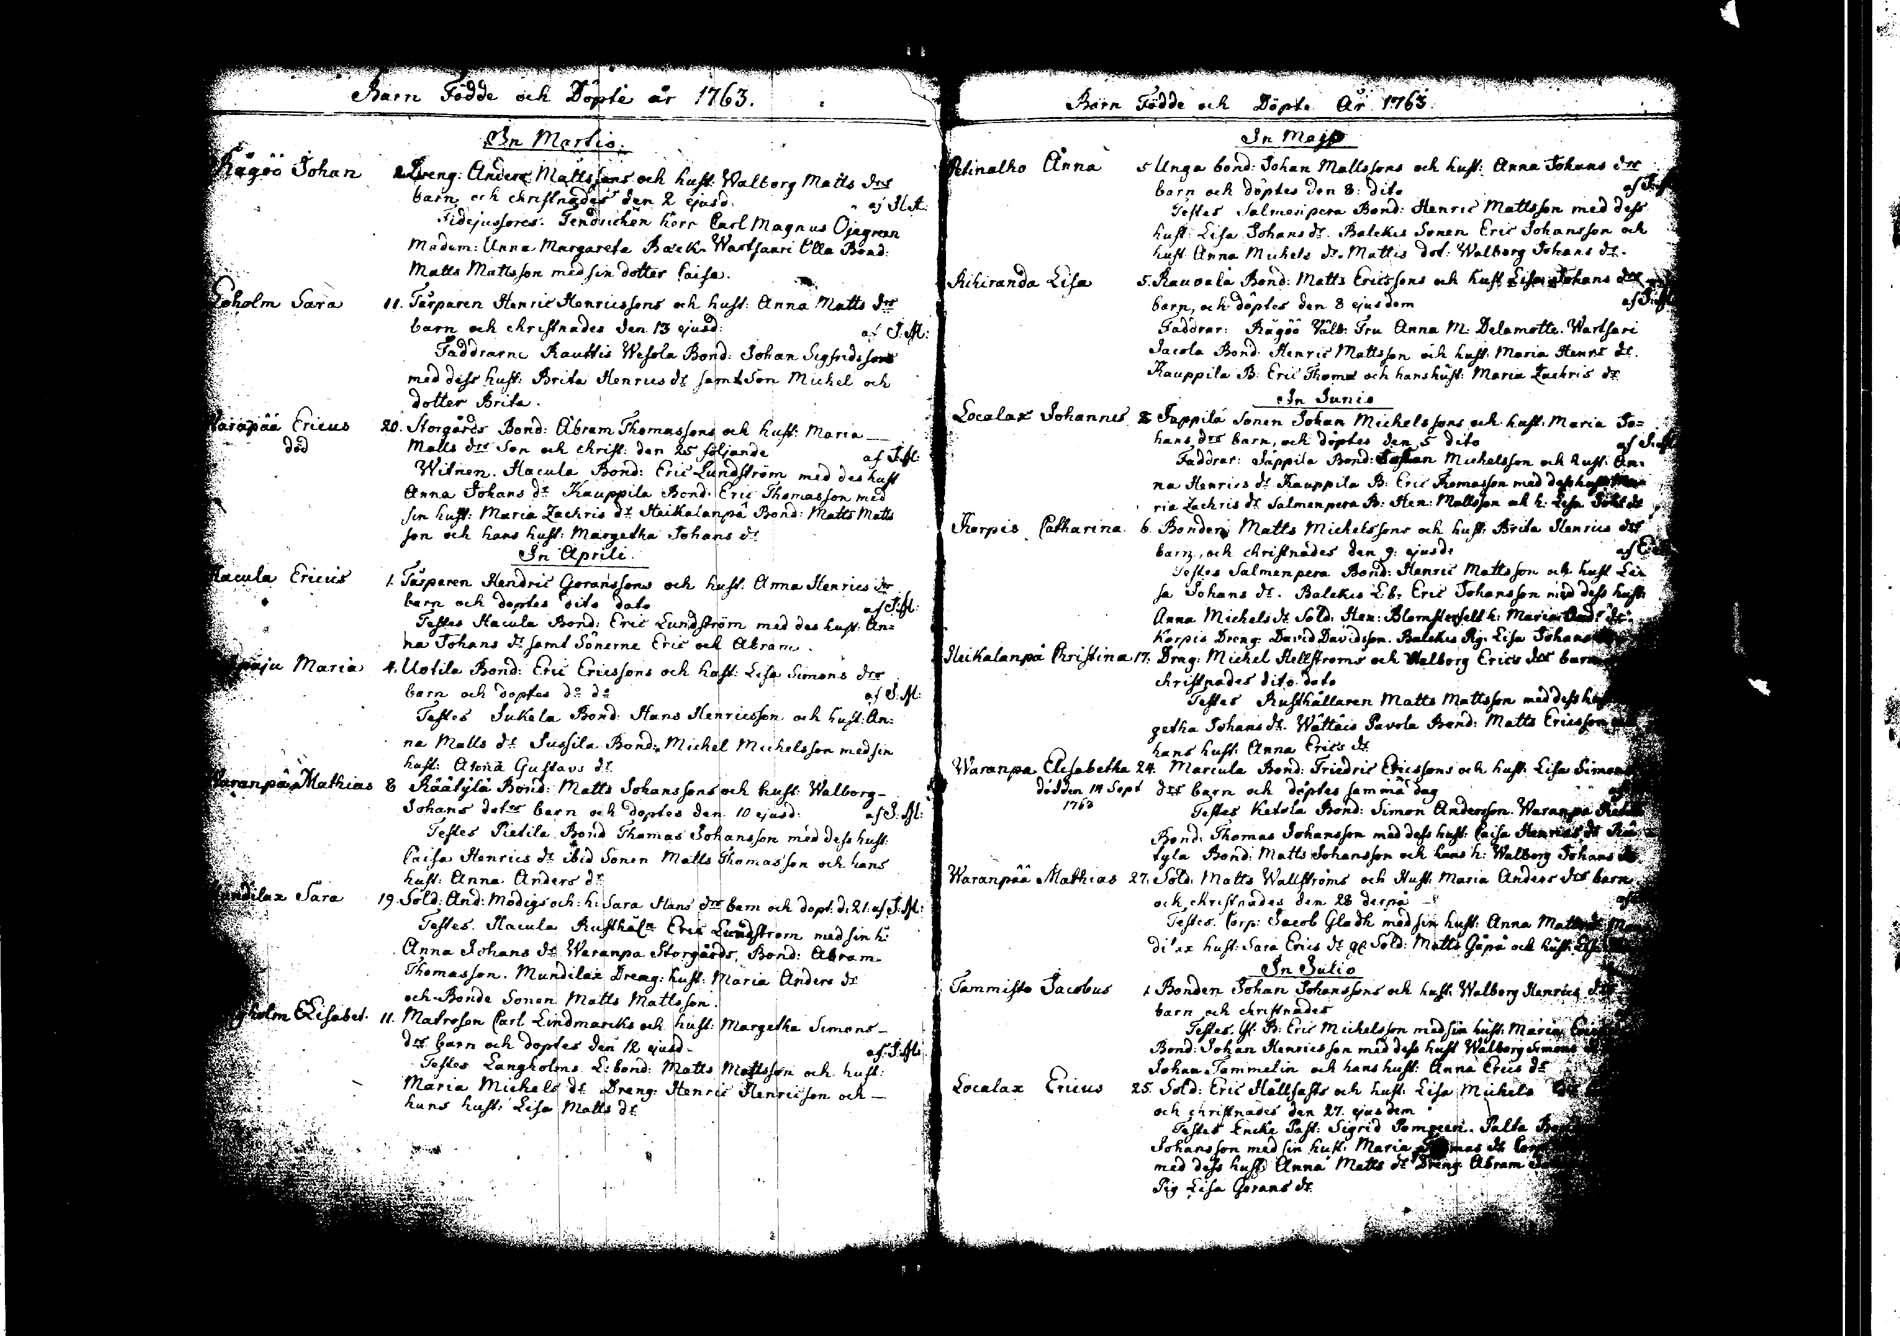 Barn Födde och Döpte år 1763.
In Martio.
Rägöö Johan 2. Dreng: Anders Mattssons och hust: Walborg Matts drs
barn, och christnades den 2 ejusd. af
Fidejussores: Fendricken herr Carl Magnus Öjegreen
Madem: Anna Margareta Wartsaari Olla Bond:
Matts Mattsson med sin dotter Caisa.
Sara 11. Täsparen Henric Henricssons och hust: Anna Matts drs
barn och christnades den 13 ejusd: af J:M:
Faddrarne Rauttis Wesola Bond: Johan Sigfredsson
med dess hust: Brita Henrics dr samt Son Michel och
dotter Brita.
Warapää Ericus 20. Storgårds Bond: Abram Thomassons och hust: Maria
död Matts drs Son och christ: den 25 följande af J:M:
Witnen. Hacula Bond: Eric Lundström med des hust
Anna Johans dr Kauppila Bond: Eric Thomasson med
sin hust: Maria Zachris dr Heikalanpä Bond: Matts Matts
son och hans hust: Margetha Johans dr
In Aprili.
Hacula Ericus 1. Täsparen Hendric Göranssons och hust: Anna Henrics dr
barn och döptes dito dato af J:M:
Testes Hacula Bond: Eric Lundström med des hust: An=
na Johans dr samt Sönerne Eric och Abram.
Maria 4. Uotila Bond: Eric Ericssons och hust: Lisa Simons drs
barn och döptes do do af J:M:
Testes Jukola Bond: Hans Henricsson och hust: An=
na Matts dr Jussila Bond: Michel Michelsson med sin
hust: Anna Gustavs dr
Waranpää Mathias 8 Räätylä Bond: Matts Johanssons och hust: Walborg
Johans dotrs barn och döptes den 10 ejusd: af J:M:
Testes Pietilä Bond Thomas Johansson med dess hust:
Caisa Henrics dr ibid Sonen Matts Thomasson och hans
hust: Anna Anders dr
Mundilax Sara 19. Sold: And: Modigs och h: Sara Hans drs barn och döpt: d: 21. af J:M:
Testes. Hacula Rusthåln Eric Lundström med sin h:
Anna Johans dr Waranpä Storgårds Bond: Abram
Thomasson. Mundilax Dreng: hust: Maria Anders dr
och Bonde Sonen Matts Mattsson.
Elisabet. 11. Matrosen Carl Lindmarcks och hust: Margetha Simons
drs barn och döptes den 12 ejusd. af J:M:
Testes Langholms L: bond: Matts Mattsson och hust:
Maria Michels dr Dreng: Henric Henricsson och
hans hust: Lisa Matts dr
Barn Födde och Döpte År 1763.
In Majo
Petinalho Anna 5 Unga bond: Johan Mattssons och hust: Anna Johans drs
barn och döptes den 8: dito af J:M
Testes Salmenpera Bond: Henric Mattsson med dess
hust: Lisa Johans dr. Balckis Sonen Eric Johansson och
hust Anna Michels dr. Mattis dot: Walborg Johans dr.
Rihiranda Lisa 5. Rauvola Bond: Matts Ericssons och hust Lisa Johans drs
barn, och döptes den 8 ejusdem af J:M
Faddrar: Rägöö Välb: Fru Anna M: Delamotte. Wartsari
Jacola Bond: Henric Mattsson och hust: Maria Henrs dr.
Kauppila B: Eric Thoma och hans hust: Maria Zachris dr
In Junio
Localax Johannes Jäppilä Sonen Johan Michelssons och hust: Maria Jo=
hans drs barn, och döptes den 5 dito af J:M
Faddrar: Jäppila Bond: Johan Michelsson och hust: An=
na Henrics dr Kauppila B: Eric Thomasson med dess hust: Ma=
ria Zachris dr Salmenpera B: Hen: Mattsson och h: Lisa Joh: dr
Korpis Catharina 6. Bonden Matts Michelssons och hust: Brita Henrics drs
barn, och christnades den 9: ejusd: af
Testes Salmenpera Bond: Henric Mattsson och hust Li=
sa Johans dr. Balckis L:B: Eric Johansson med dess hust:
Anna Michels dr Sold: Hen: Blomsterfelt h: Maria And: dr
Korpis Dreng: David Davidsson. Balckis Pig. Lisa Johans
Heikalanpä Christina 17. Dreng: Michel Hellstroms och Walborg Erics drs barn
christnades dito dato
Testes Rusthållaren Matts Mattsson med dess
getha Johans dr. Wättäis Pavola Bond: Matts Ericsson
hans hust: Anna Erics dr
Waranpa Elisabetha 24. Maricula Bond: Friedric Ericssons och hust: Lisa Simons
död den 14 Sept drs barn och döptes samma dag
1763 Testes Ketola Bond: Simon Andersson. Waranpa
Bond: Thomas Johansson med dess hust: Caisa Henrics dr Rää
tyla Bond: Matts Johansson och hans h: Walborg Johans dr
Waranpää Mathias 27. Sold: Matts Wallströms och Hust: Maria Anders drs barn
och christnades den 28 derpå
Testes. Corp: Jacob Gladh med sin hust: Anna Matts dr Mun
dilax hust: Sara Erics dr Sold: Matts Gäpä och hust:
In Julio
Tammisto Jacobus 1. Bonden Johan Johanssons och hust: Walborg Henrics drs
barn och christnades
Testes. B: Eric Michelsson med sin hust: Maria
Bond: Johan Henricsson med dess hust Walborg Simons dr
Johan Tammelin och hans hust: Anna Erics dr
Localax Ericus 25. Sold: Eric Hållfasts och hust: Lisa Michels
och christnades den 27. ejusdem
Testes Encke Past: Sigrid Pomqeen. Palta
Johansson med sin hust: Maria Thomas dr
med dess hust: Anna Matts dr Dreng Abram
Pig Lisa Görans dr